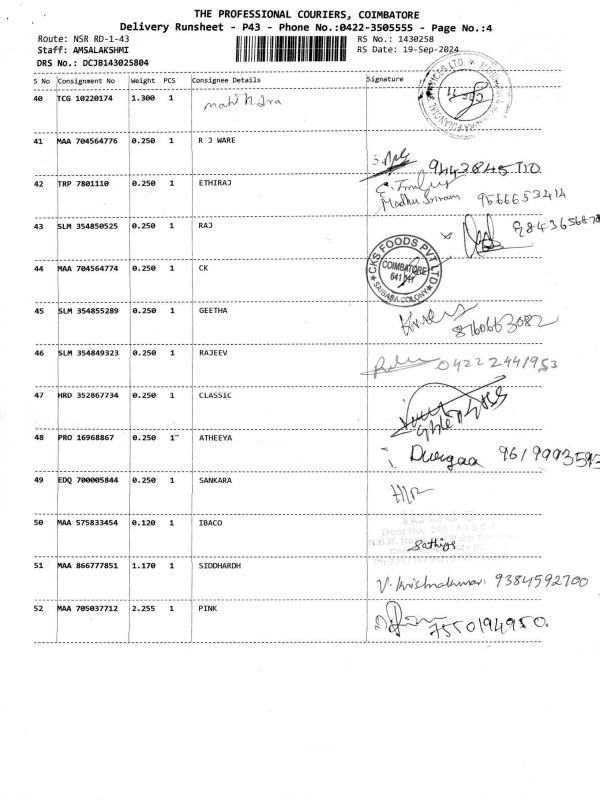 THE PROFESSIONAL COURIERS, COIMBATORE
Delivery Runsheet - P43 - Phone No.:0422-3505555 - Page No.:4
Route: NSR RD-1-43 RS No.: 1430258
Staff: AMSALAKSHMI RS Date: 19-Sep-2024
DRS No.: DCJB143025804
S No Consignment No Weight PCS Consignee Details Signature
40 TCG 10220174 1.300 1
41 MAA 704564776 0.250 1 R J WARE
42 TRP 7801110 0.250 1 ETHIRAJ
Madhu Sriram 9566653414
43 SLM 354850525 0.250 1 RAJ
44 MAA 704564774 0.250 1 CK
CKS FOODS PVT LTD
COIMBATORE
SAIBABA COLONY
45 SLM 354855289 0.250 1 GEETHA
8760663082
46 SLM 354849323 0.250 1 RAJEEV
0422 2441953
47 HRD 352867734 0.250 1 CLASSIC
48 PRO 16968867 0.250 1 ATHEEYA
Durgaa
49 EDQ 700005844 0.250 1 SANKARA
50 MAA 575833454 0.120 1 IBACO
Sathiya
51 MAA 866777851 1.170 1 SIDDHARDH
V. Krishnakumar 9384592700
52 MAA 705037712 2.255 1 PINK
7550194950.